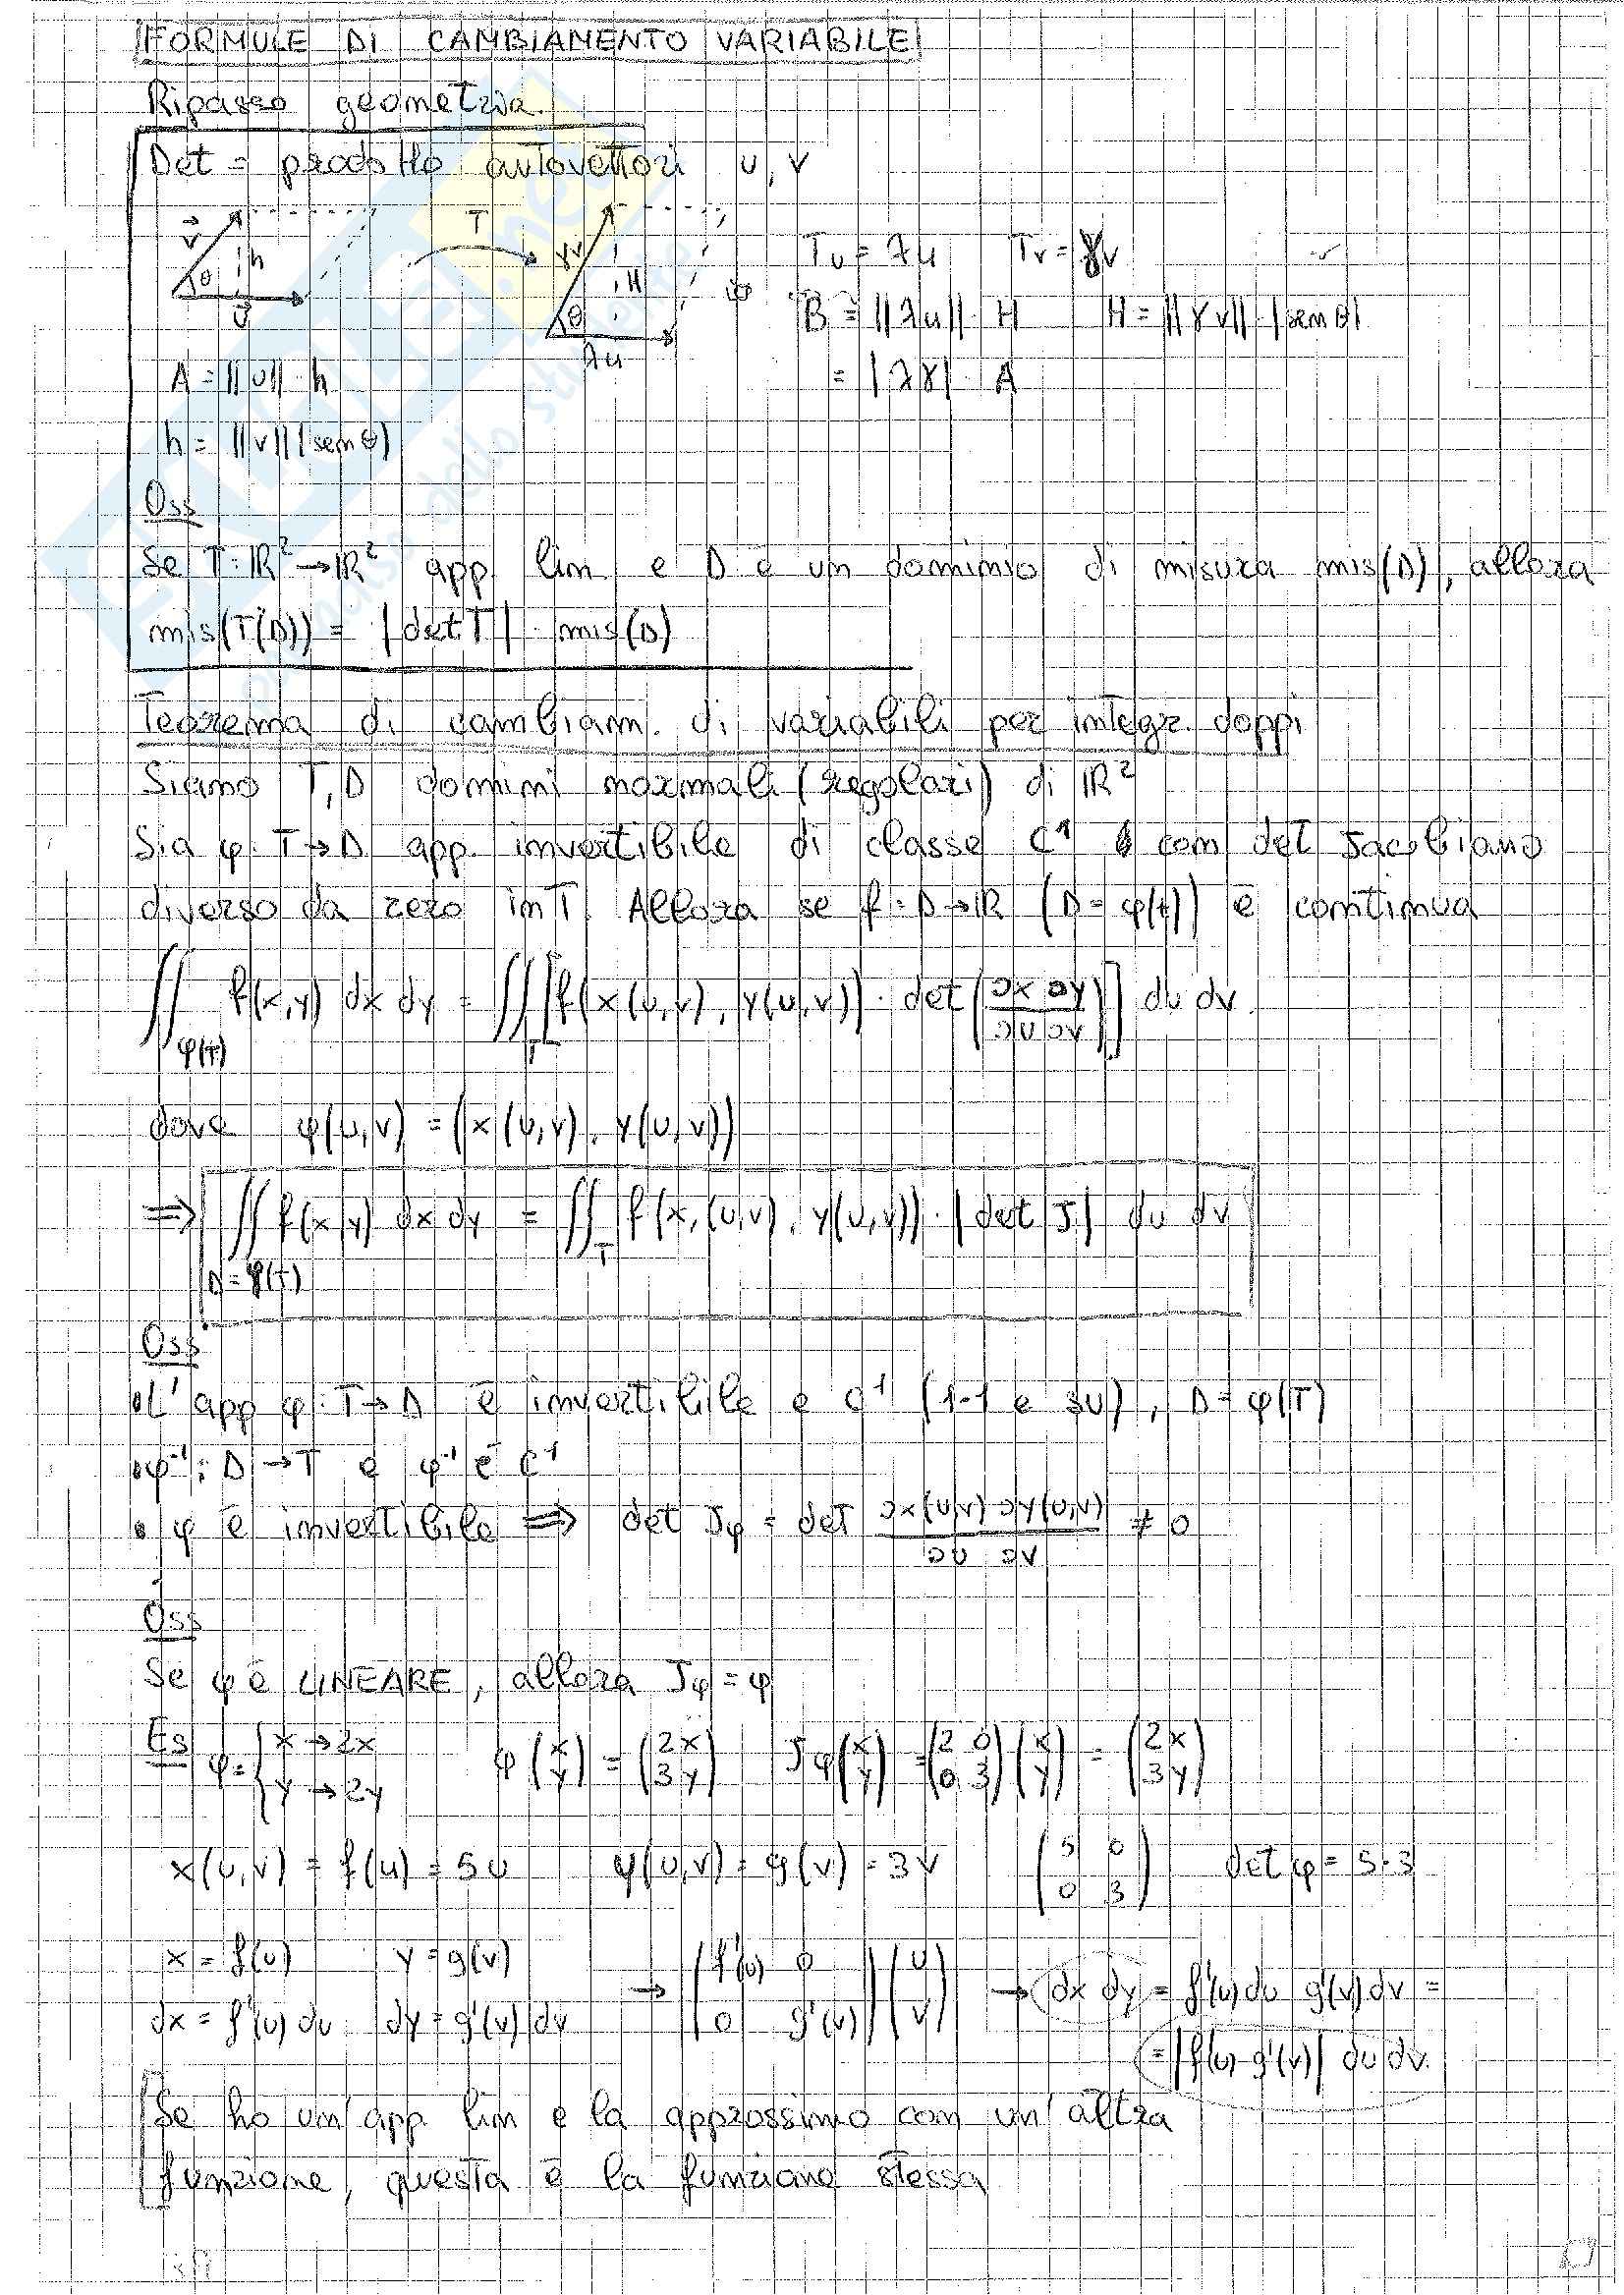 FORMULE DI CAMBIAMENTO VARIABILE
Ripasso geometria.
Det = prodotto autovettori u, v
v⃗ θ h u⃗ T γv θ H λu
Tu = λu Tv = γv
B = ||λu|| · H H = ||γv|| · |sen θ|
A = ||u|| · h = |λγ| · A
h = ||v|| |sen θ|
Oss
Se T: ℝ² → ℝ² app lin e D è un dominio di misura mis(D), allora
mis(T(D)) = |det T| · mis(D)
Teorema di cambiam. di variabili per integr. doppi
Siano T, D domini normali (regolari) di ℝ²
Sia φ: T → D app. invertibile di classe C¹ con det Jacobiano
diverso da zero in T. Allora se f: D → ℝ (D = φ(t)) è continua
∬φ(T) f(x,y) dx dy = ∬T [f(x(u,v), y(u,v)) · det(∂x ∂y / ∂u ∂v)] du dv.
dove φ(u,v) = (x(u,v), y(u,v))
⇒ ∬D=φ(t) f(x,y) dx dy = ∬T f(x,(u,v), y(u,v)) · |det J| du dv
Oss
• L'app φ: T → D è invertibile e C¹ (1-1 e su), D = φ(T)
• φ⁻¹: D → T e φ⁻¹ è C¹
• φ è invertibile ⇒ det Jφ = det ∂x(u,v) ∂y(u,v) / ∂u ∂v ≠ 0
Oss
Se φ è LINEARE, allora Jφ = φ
Es φ = { x → 2x y → 2y φ(x y) = (2x 3y) Jφ(x y) = (2 0 0 3)(x y) = (2x 3y)
x(u,v) = f(u) = 5u y(u,v) = g(v) = 3v (5 0 0 3) det φ = 5·3
x = f(u) y = g(v) → (f'(u) 0 0 g'(v)) (u v) → dx dy = f'(u) du g'(v) dv =
dx = f'(u) du dy = g'(v) dv = |f'(u) g'(v)| du dv.
Se ho un'app lin e la approssimo con un'altra
funzione, questa è la funzione stessa